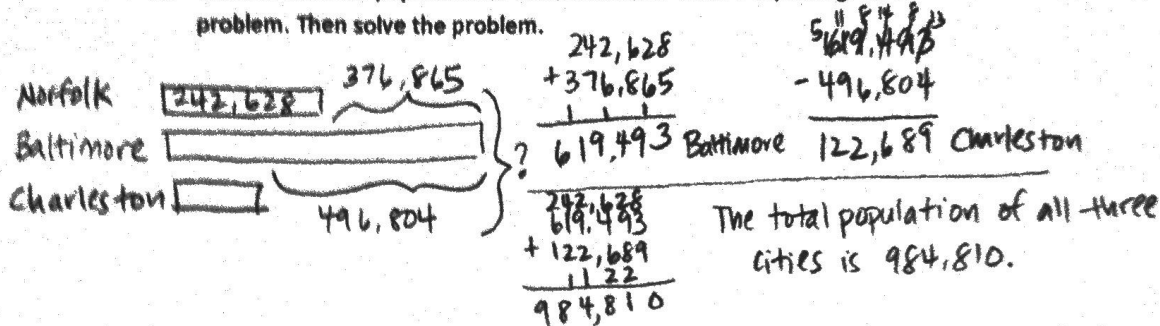 problem. Then solve the problem.
Norfolk 242,628 376,865
Baltimore
Charleston 496,804
?
242,628
+376,865
1 1 1
619,493 Baltimore
619,493
-496,804
122,689 Charleston
242,628
619,493
+ 122,689
1 1 2 2
984,810
The total population of all three
cities is 984,810.